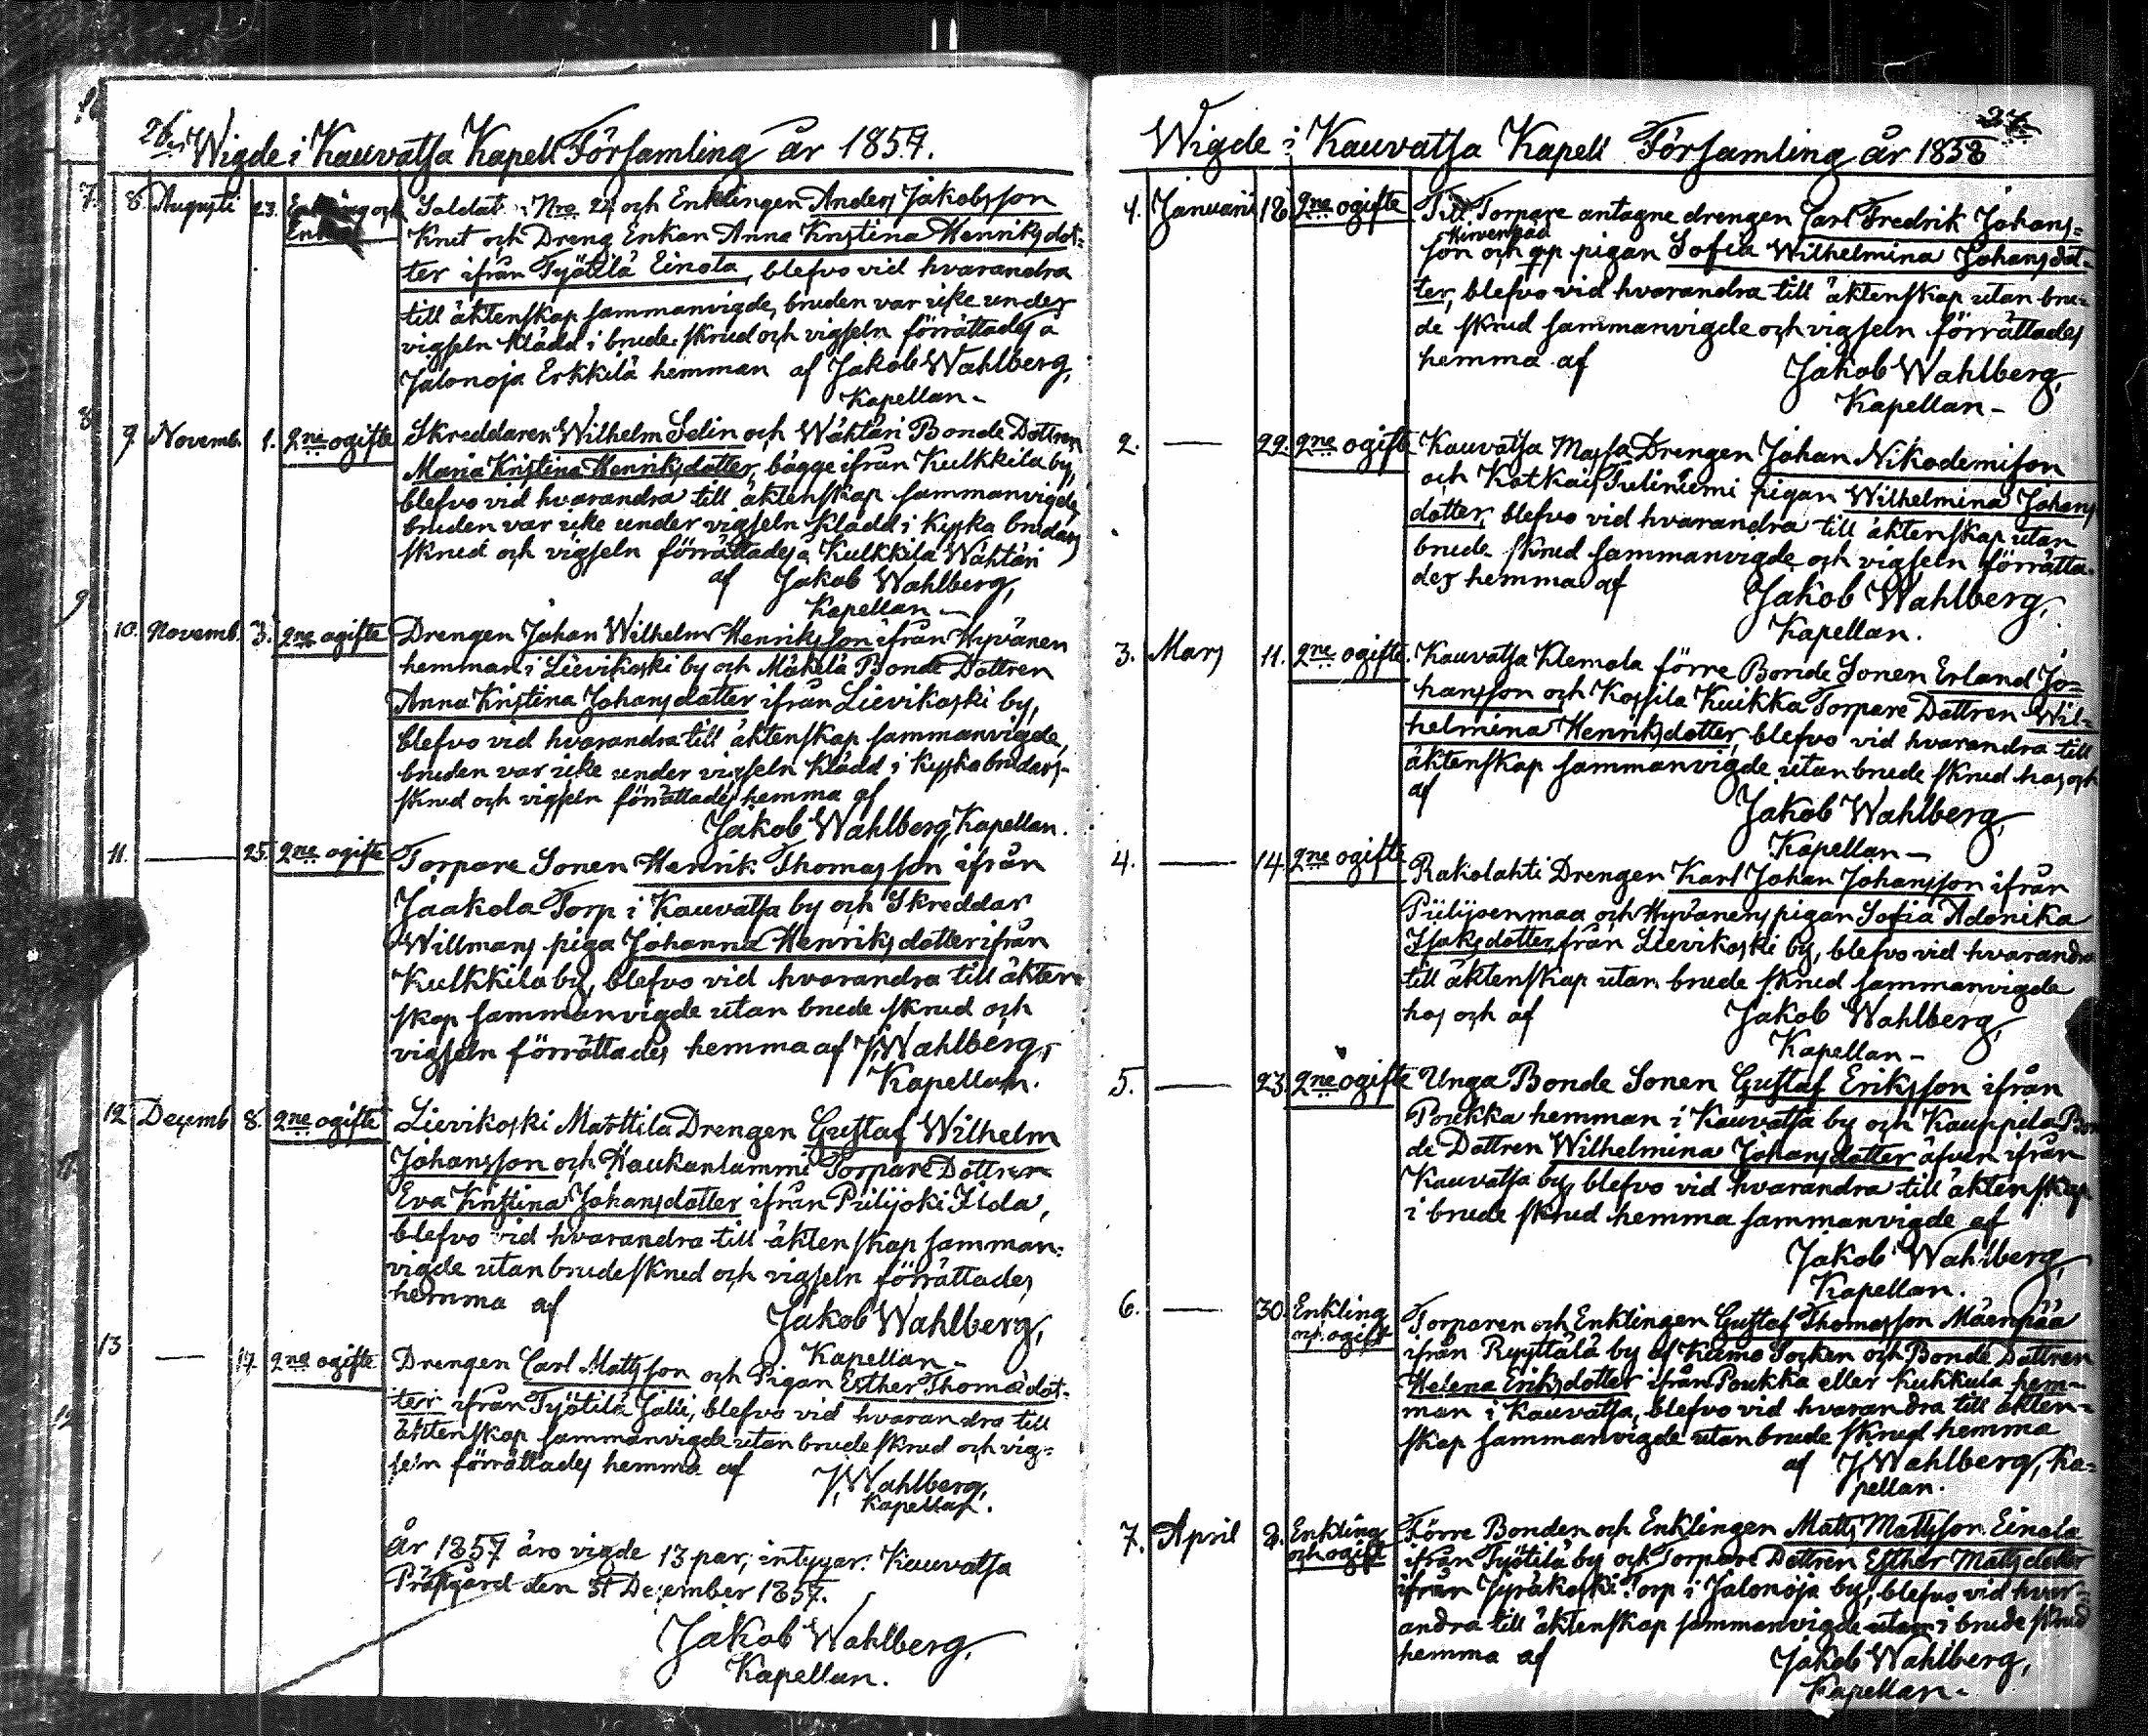 26.
Wigde i Kauvatsa Kapell Församling år 1857.
8. Augusti 23. Enkling och Enka
Soldat Nro 24 och Enklingen Anders Jakobsson
Knut och Dreng Enkan Anna Kristina Henriksdot-
ter ifrån Työtilä Einola, blefvo vid hvarandra
till äktenskap sammanvigde, bruden var icke under
vigseln klädd i brude skrud och vigseln förrättades å
Jalonoja Erkkilä hemman af Jakob Wahlberg,
Kapellan.
9. Novemb. 1. 2ne ogifte
Skreddaren Wilhelm Selin och Wähtäri Bonde Dottren
Maria Kristina Henriksdotter, bägge ifrån Kulkkila by,
blefvo vid hvarandra till äktenskap sammanvigde,
bruden var icke under vigseln klädd i kyska brudars
skrud och vigseln förrättades å Kulkkila Wähtäri
af Jakob Wahlberg,
Kapellan
10. Novemb. 3. 2ne ogifte
Drengen Johan Wilhelm Henriksson ifrån Hyvänen
hemman i Lievikoski by och Mäkelä Bonde Dottren
Anna Kristina Johansdotter ifrån Lievikoski by,
blefvo vid hvarandra till äktenskap sammanvigde,
bruden var icke under vigseln klädd i kyska brudars-
skrud och vigseln förrättades hemma af
Jakob Wahlberg, Kapellan.
11. — 25. 2ne ogifte
Torpare Sonen Henrik Thomasson ifrån
Jaakola Torp i Kauvatsa by och Skreddar
Willmans piga Johanna Henriksdotter ifrån
Kulkkila by, blefvo vid hvarandra till äkten-
skap sammanvigde utan brude skrud och
vigseln förrättades hemma af J. Wahlberg,
Kapellan.
12. Decemb 8. 2ne ogifte
Lievikoski Marttila Drengen Gustaf Wilhelm
Johansson och Haukanlammi Torpare Dottren
Eva Kristina Johansdotter ifrån Piilijoki Iso,
blefvo vid hvarandra till äktenskap samman-
vigde utan brude skrud och vigseln förrättades
hemma af Jakob Wahlberg,
Kapellan
13 — 17 2ne ogifte
Drengen Carl Mattsson och Pigan Esther Thomædot-
ter ifrån Työtilä Jalii, blefvo vid hvarandra till
äktenskap sammanvigde utan brude skrud och vig-
seln förrättades hemma af J. Wahlberg,
Kapellan.
År 1857 äro vigde 13 par; intygar: Kauvatsa
Prästgård den 31 December 1857.
Jakob Wahlberg,
Kapellan.
27.
Wigde i Kauvatsa Kapell Församling år 1858
1. Januari 18 2ne ogifte
Till Torpare antagne drengen Carl Fredrik Johans-
Hirvenpää
son och qp pigan Sofia Wilhelmina Johansdot-
ter, blefvo vid hvarandra till äktenskap utan bru-
de skrud sammanvigde och vigseln förrättades
hemma af Jakob Wahlberg,
Kapellan
2. — 22. 2ne ogifte
Kauvatsa Massa Drengen Johan Nikodemison
och Kotkais Tuliniemi pigan Wilhelmina Johans
dotter, blefvo vid hvarandra till äktenskap utan
brude skrud sammanvigde och vigseln förrätta-
des hemma af Jakob Wahlberg,
Kapellan.
3. Mars 11. 2ne ogifte.
Kauvatsa Klemola förre Bonde Sonen Erland Jo-
hansson och Kossila Kuikka Torpare Dottren Wil-
helmina Henriksdotter, blefvo vid hvarandra till
äktenskap sammanvigde utan brude skrud hos och
af Jakob Wahlberg,
Kapellan
4. — 14. 2ne ogifte
Rakolahti Drengen Karl Johan Johansson ifrån
Piilijoenmaa och Hyvänens pigan Sofia Adonika
Isaksdotter från Lievikoski by, blefvo vid hvarandra
till äktenskap utan brude skrud sammanvigde
hos och af Jakob Wahlberg,
Kapellan
5. — 23. 2ne ogifte
Unga Bonde Sonen Gustaf Eriksson ifrån
Poukka hemman i Kauvatsa by och Kauppila Bon
de Dottren Wilhelmina Johansdotter äfven ifrån
Kauvatsa by, blefvo vid hvarandra till äktenskap
i brude skrud hemma sammanvigde af
Jakob Wahlberg,
Kapellan.
6. — 30. Enkling och ogift
Torparen och Enklingen Gustaf Thomasson Mäenpää
ifrån Ryyttälä by af Kumo Socken och Bonde Dottren
Helena Eriksdotter ifrån Poukka eller Kukkula hem-
man i Kauvatsa, blefvo vid hvarandra till äkten-
skap sammanvigde utan brude skrud hemma
af J. Wahlberg, Ka-
pellan.
7. April 2. Enkling och ogift
Förre Bonden och Enklingen Matts Mattsson Einola
ifrån Työtilä by och Torpare Dottren Esther Mattsdotter
ifrån Jyräkoski Torp i Jalonoja by, blefvo vid hvar-
andra till äktenskap sammanvigde utan i brude skrud
hemma af Jakob Wahlberg,
Kapellan